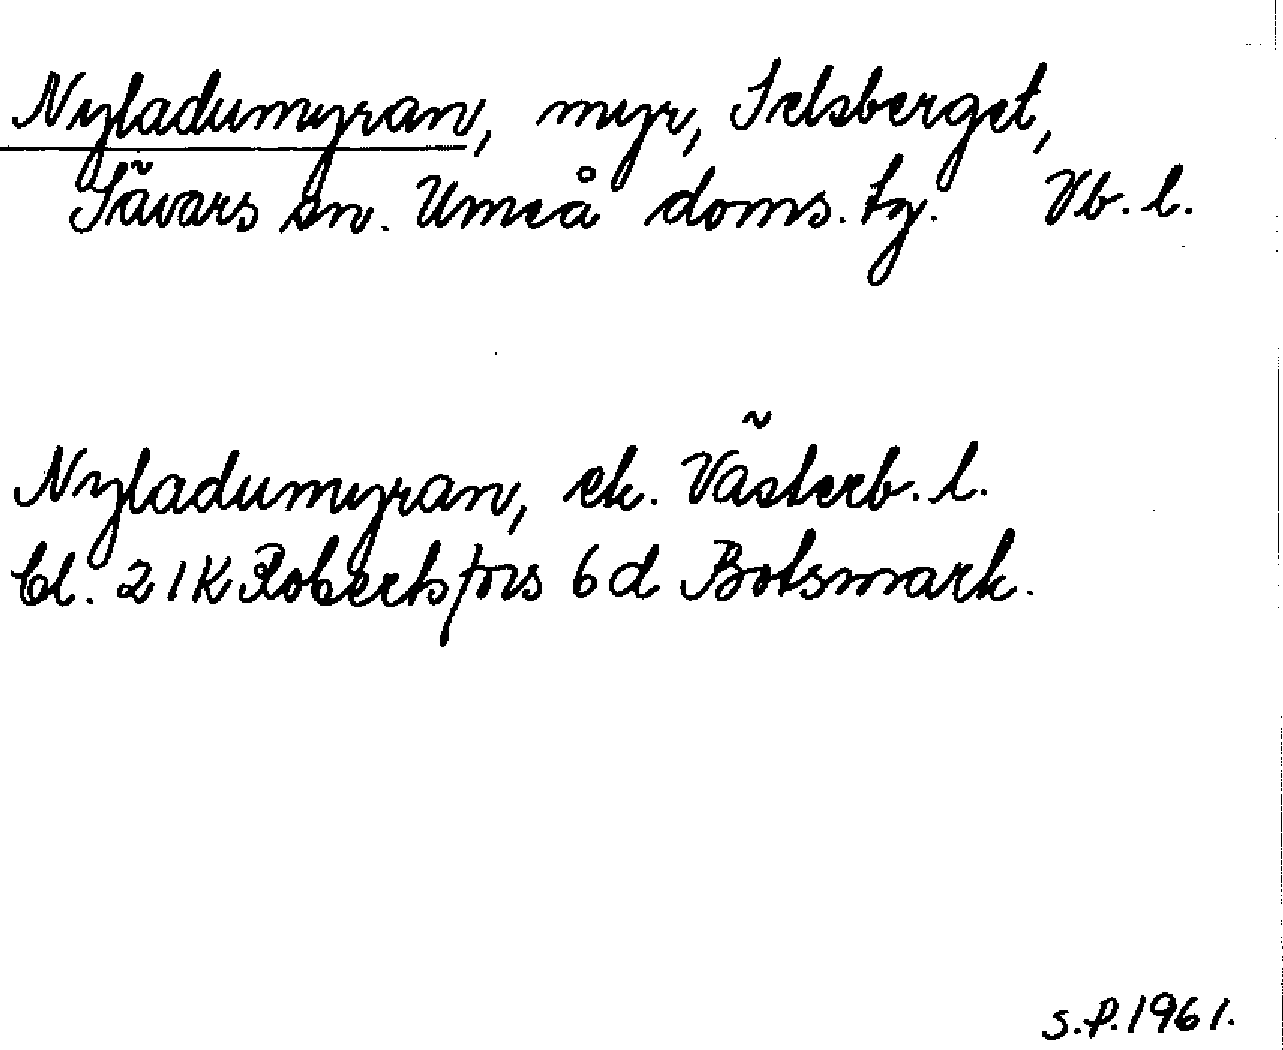 Nyladumyran, myr, Selsberget,
Sävars sn. Umeå doms. tg. Vb. l.
Nyladumyran, ek. Västerb. l.
Bl. 21K Robertsfors 6d Botsmark.
S.P. 1961.